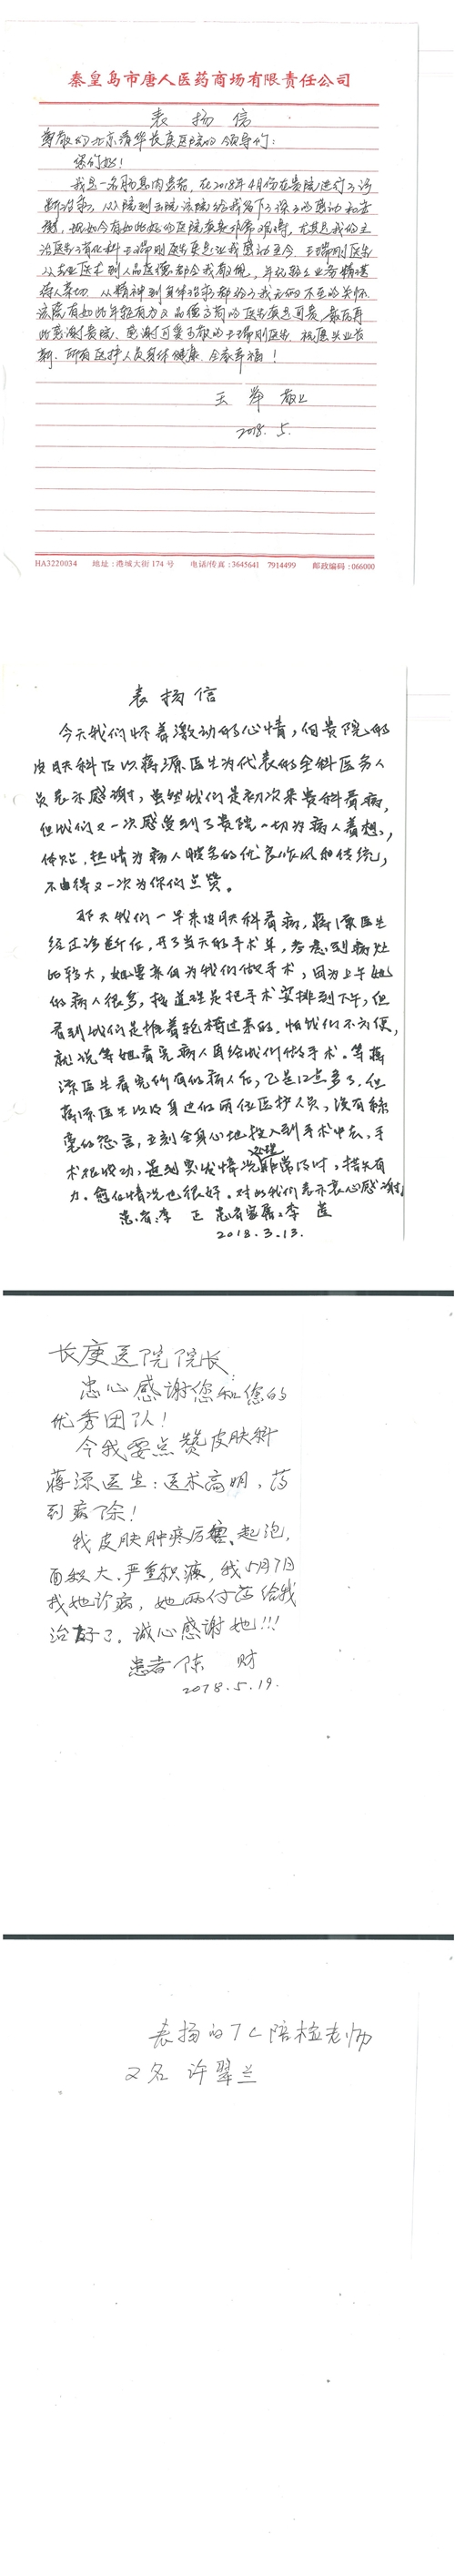 秦皇岛市唐人医药商场有限责任公司
表扬信
尊敬的北京清华长庚医院的领导们：
您们好！
我是一名肠息肉患者，在2018年4月份在贵院进行了诊
断治疗，从入院到出院该院给我留下了深深的感动和感
谢，现如今有如此好的医院真是非常难得，尤其是我的主
治医生消化科王瑞刚医生更是让我感动至今，王瑞刚医生
从专业医术到人品医德都令我敬佩，年纪轻业务精湛
待人亲切，从精神到身体治疗都给了我无微不至的关怀
该院有如此年轻有为又品德高尚的医生真是可贵，最后再
此感谢贵院、感谢可爱可敬的王瑞刚医生，祝愿贵业长
新，所有医护人员身体健康，全家幸福！
王 举 敬上
2018.5.
HA3220034 地址：港城大街174号 电话/传真：3645641 7914499 邮政编码：066000
表扬信
今天我们怀着激动的心情，向贵院的
皮肤科及以蒋源医生为代表的全科医务人
员表示感谢，虽然我们是初次来贵科看病，
但我们又一次感受到了贵院一切为病人着想，
体贴、热情为病人服务的优良作风和传统，
不由得又一次为你们点赞。
那天我们一早来皮肤科看病，蒋源医生
经过诊断后，开了当天的手术单，考虑到病灶
的较大，她要亲自为我们做手术，因为上午她
的病人很多，按道理是把手术安排到下午，但
看到我们是推着轮椅过来的，怕我们不方便，
就说等她看完病人再给我们做手术。等蒋
源医生看完所有的病人后，已是12点多了，但
蒋源医生以及身边的两位医护人员，没有丝
毫的怨言，立刻全身心地投入到手术中去，手
术很成功，是到突发情况处理非常及时，措失有
力。愈后情况也很好。对此我们表示衷心感谢。
患者：李 正 患者家属：李 莲
2018.3.13.
长庚医院院长：
忠心感谢您和您的
优秀团队！
今我要点赞皮肤科
蒋源医生：医术高明，药
到病下除！
我皮肤肿疼厉害、起泡，
面较大、严重积液，我5月7日
找她诊病，她两付药给我
治好了，诚心感谢她!!!
患者陈 财
2018.5.19.
表扬的7C陪检老师
又名 许翠兰